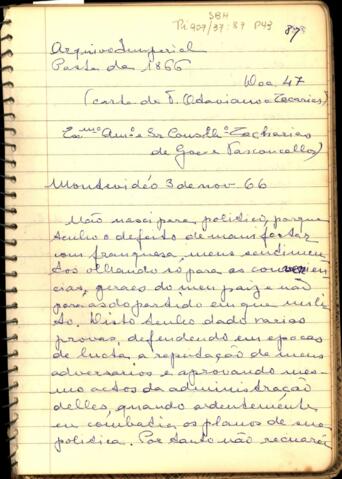 SBH
Pi 909/37:87 P43
87
Arquivo Imperial
Pasta de 1866
Doc 47
(carta de F. Odaviano a Zacarias)
Exmº Amº e Sr Conselhº Zacharias
de Goes e Vasconcellos)
Montevidéo 3 de nov 66
Não nasci para politico, porque
tenho o defeito de manifestar
com franquesa, meus sentimen
tos olhando só para as conveni
encias, geraes do meu paiz e não
para as do partido em que mili
to. Disto tenho dado varias
provas, defendendo em epocas
de lucta a reputação de meus
adversarios e aprovando mes-
mo actos da administração
delles, quando ardentemente
eu combatia os planos de sua
politica. Por tanto não recuarei